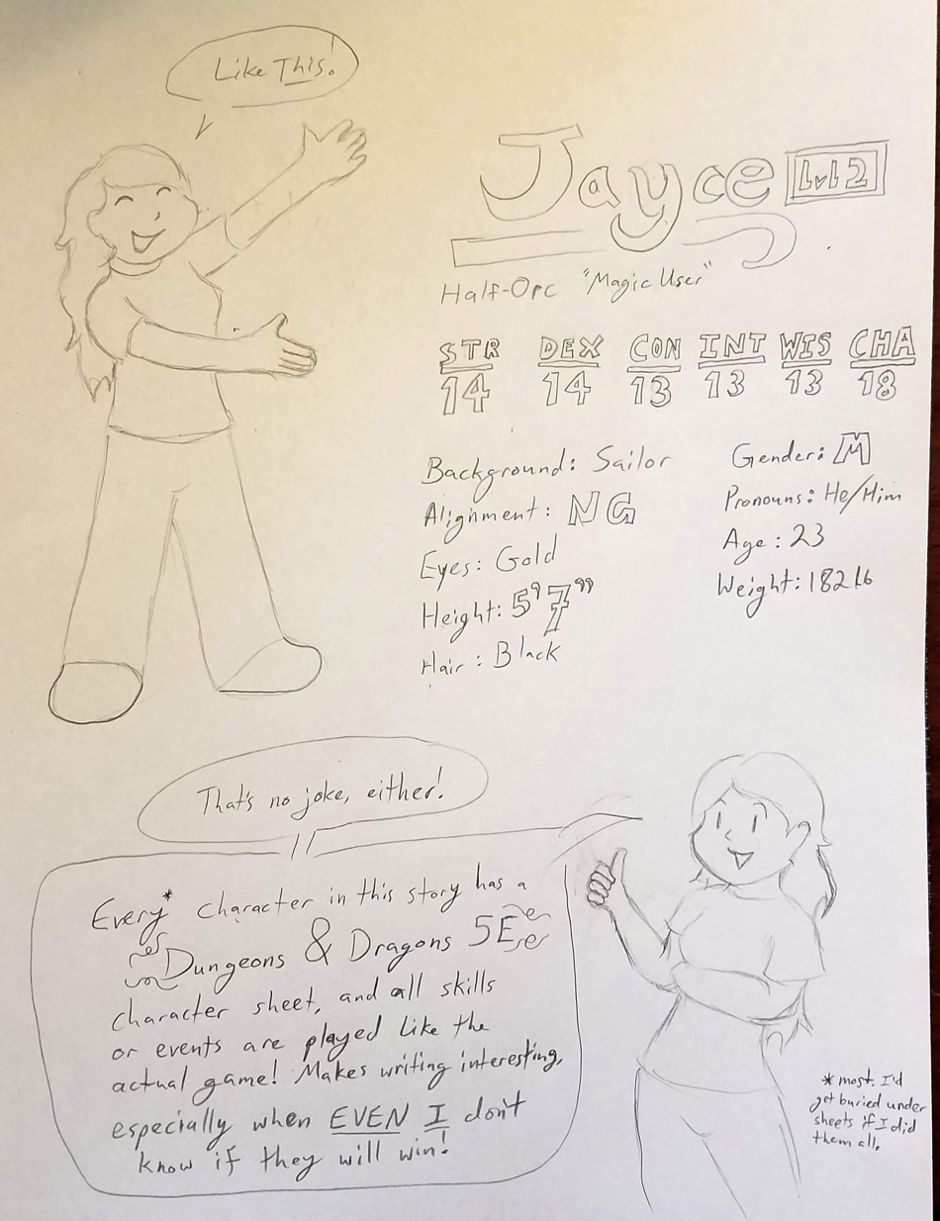 Like This!
Jayce Lvl 2
Half-Orc "Magic User"
STR DEX CON INT WIS CHA
14 14 13 13 13 18
Background: Sailor
Alignment: NG
Eyes: Gold
Height: 5'7"
Hair: Black
Gender: M
Pronouns: He/Him
Age: 23
Weight: 182 lb
That's no joke, either!
Every* character in this story has a
Dungeons & Dragons 5E
character sheet, and all skills
or events are played like the
actual game! Makes writing interesting,
especially when EVEN I don't
know if they will win!
*most. I'd
get buried under
sheets if I did
them all.